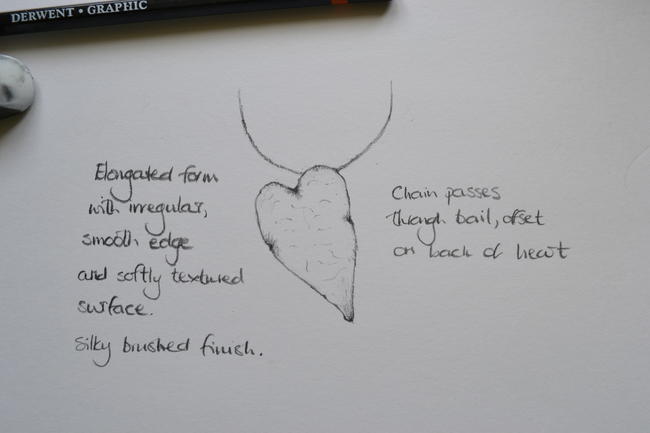 DERWENT • GRAPHIC
Elongated form
with irregular,
smooth edge
and softly textured
surface.
Silky brushed finish.
Chain passes
through bail, offset
on back of heart